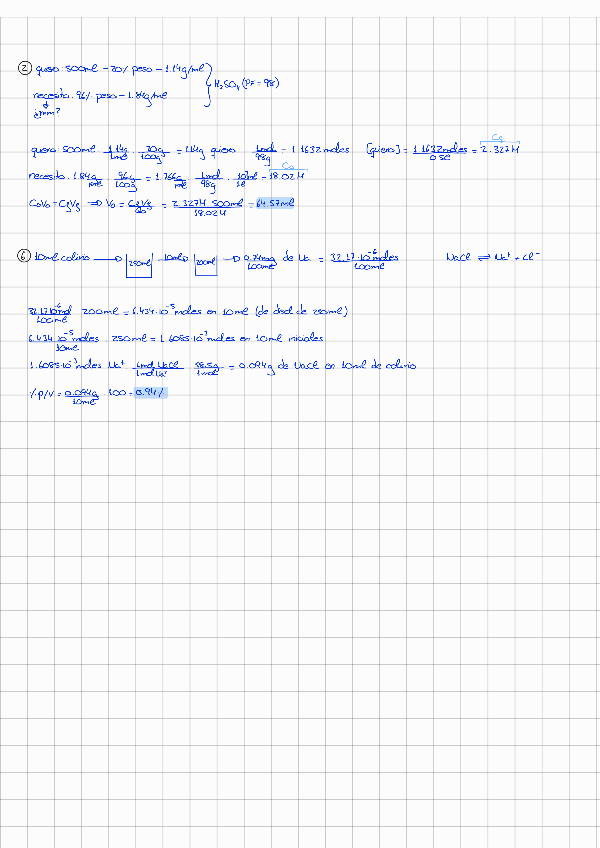 ② quiero: 500ml - 20% peso - 1.14g/ml
H₂SO₄ (PF = 98)
necesito: 96% peso - 1.84g/ml
¿mm?
quiero: 500ml 1.14g/1ml 20g/100g = 114g quiero 1mol/98g = 1.1632 moles [quiero] = 1.1632 moles/0.5l = 2.327M
necesito: 1.84g/1ml 96g/100g = 1.766g/ml 1mol/98g 10³ml/1l = 18.02M
C₀V₀ = CgVg ⇒ V₀ = CgVg/C₀ = 2.327M 500ml/18.02M = 64.57ml
⑥ 10ml colirio → 250ml 10ml → 200ml → 0.74mg/100ml de Na = 32.17·10⁻⁶ moles/100ml NaCl ⇌ Na⁺ + Cl⁻
32.17·10⁻⁶ mol/100ml 200ml = 6.434·10⁻⁵ moles en 10ml (de disol de 250ml)
6.434·10⁻⁵ moles/10ml 250ml = 1.6085·10⁻³ moles en 10ml iniciales
1.6085·10⁻³ moles Na⁺ 1mol NaCl/1mol Na⁺ 58.5g/1mol = 0.094g de NaCl en 10ml de colirio
% p/v = 0.094g/10ml 100 = 0.94%